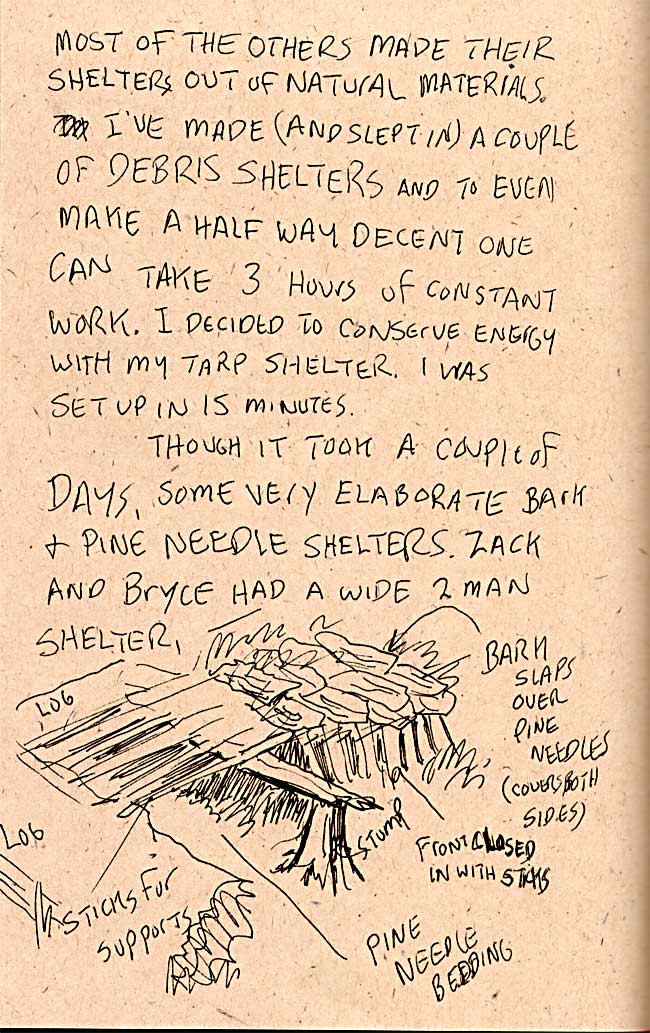 MOST OF THE OTHERS MADE THEIR
SHELTERS OUT OF NATURAL MATERIALS.
I'VE MADE (AND SLEPT IN) A COUPLE
OF DEBRIS SHELTERS AND TO EVEN
MAKE A HALF WAY DECENT ONE
CAN TAKE 3 HOURS OF CONSTANT
WORK. I DECIDED TO CONSERVE ENERGY
WITH MY TARP SHELTER. I WAS
SET UP IN 15 MINUTES.
THOUGH IT TOOK A COUPLE OF
DAYS, SOME VERY ELABORATE BARK
+ PINE NEEDLE SHELTERS. ZACK
AND BRYCE HAD A WIDE 2 MAN
SHELTER,
BARK
SLAPS
OVER
PINE
NEEDLES
(COVERS BOTH
SIDES)
LOG
STUMP
FRONT CLOSED
IN WITH STICKS
LOG
STICKS FOR
SUPPORTS
PINE
NEEDLE
BEDDING